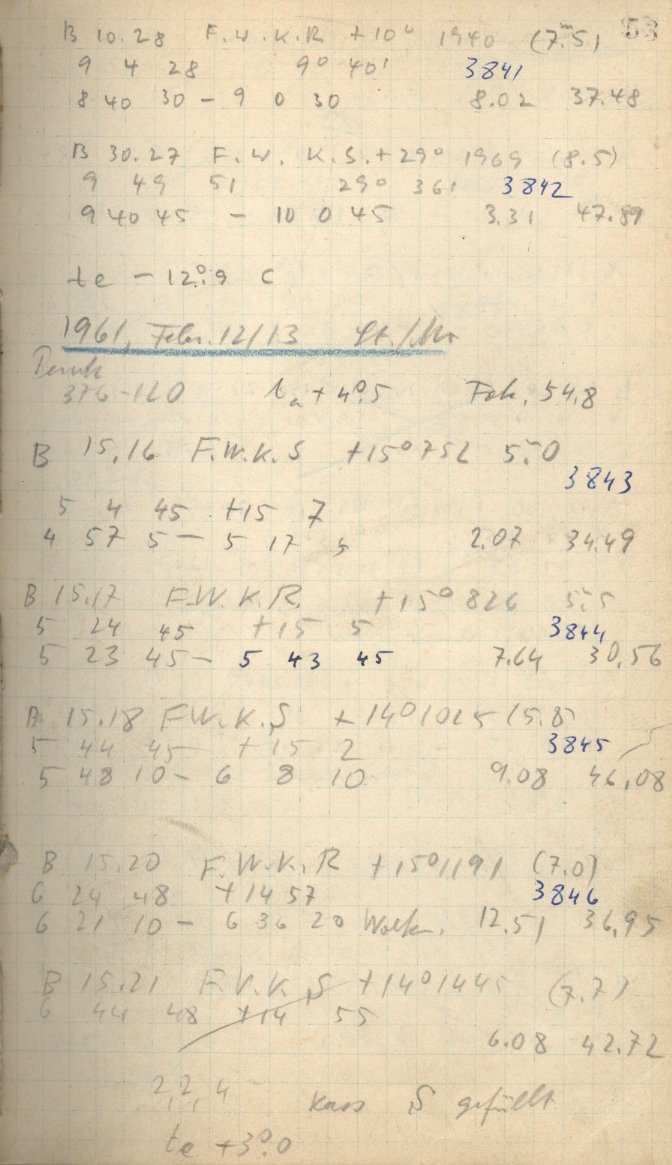 53
B 10.28 F.W.K.R +10° 1940 (7.m5)
9 4 28 9° 40' 3841
8 40 30 - 9 0 30 8.02 37.48
B 30.27 F.W. K.S. +29° 1969 (8.5)
9 49 51 29° 36' 3842
9 40 45 - 10 0 45 3.31 47.89
te - 12°.9 C
1961, Febr. 12/13 St./
376-120 ta + 4°.5 Fok. 54,8
B 15.16 F.W.K.S +15° 752 5.0
3843
5 4 45 +15 7
4 57 5 - 5 17 5 2.07 34.49
B 15.17 F.W.K.R. +15° 826 5.5
5 24 45 +15 5 3844
5 23 45 - 5 43 45 7.64 30,56
B 15.18 F.W.K.S +14° 1025 (5.8)
5 44 45 +15 2 3845
5 48 10 - 6 8 10 9.08 46,08
B 15.20 F.W.K.R +15° 1191 (7.0)
6 24 48 +14 57 3846
6 21 10 - 6 36 20 Wolken. 12.51 36,95
B 15.21 F.W.K.S +14° 1445 (7.7)
6 44 48 +14 55
6.08 42.72
2, 2, 4 Kass S gefüllt
te +3°.0